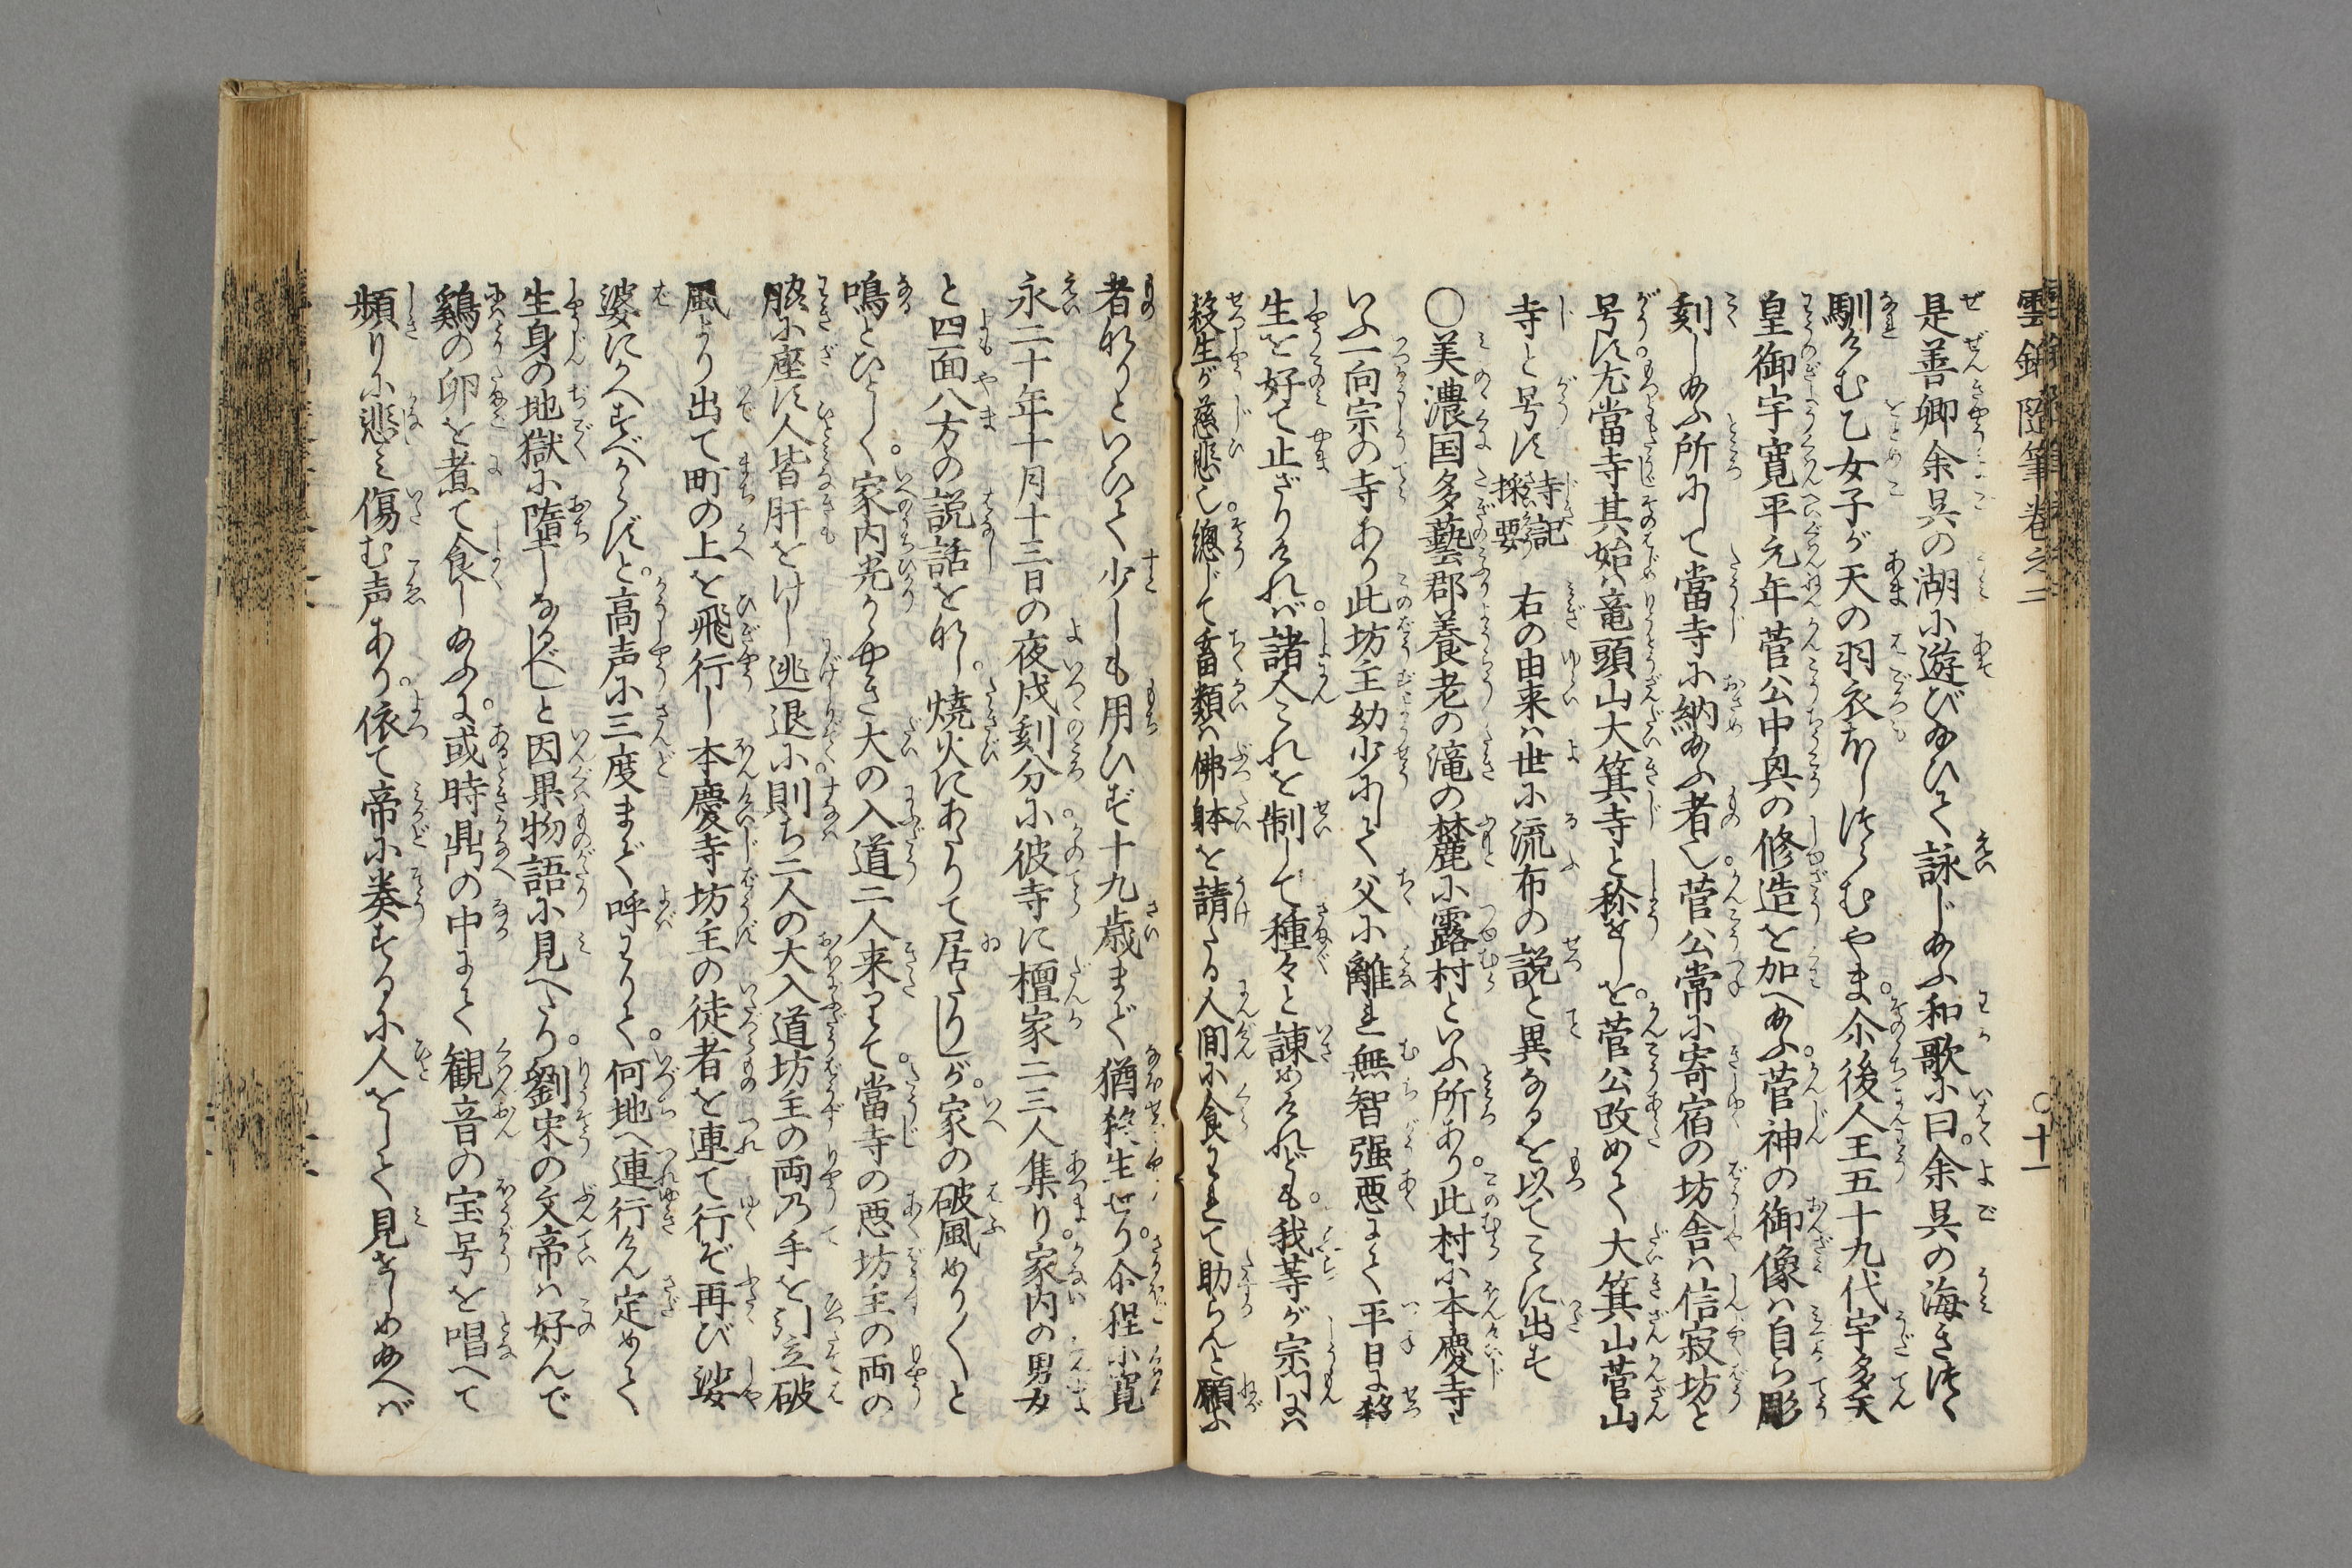 雲錦随筆巻之二
〇十一
是善卿余呉の湖に遊び給ひて詠じ給ふ和歌に曰。余呉の海きつく
馴けむ乙女子が天の羽衣ほしつらむやま。尒後人王五十九代宇多天
皇御宇寛平元年菅公中興の修造を加へ給ふ。菅神の御像ハ自ら彫
刻し給ふ所にして當寺に納給ふ者也。菅公常に寄宿の坊舎ハ信寂坊と
号す。尤當寺其始ハ竜頭山大箕寺と称せしを。菅公改めて大箕山菅山
寺と号す 寺記採要 右の由来ハ世に流布の説と異なるを以てこゝに出す
〇美濃国多藝郡養老の滝の麓に露村といふ所あり。此村に本慶寺と
いふ一向宗の寺あり此坊主幼少にして父に離れ無智强悪にて平日に殺
生を好て止ざりければ。諸人これを制して種々と諫めけれども。我等が宗門にハ
殺生が慈悲也。總じて畜類ハ佛躰を請たる人間に食はれて助らんと願ふ
者なりといひて少しも用ひず十九歳まで猶殺生せり。尒程に寛
永二十年十月十三日の夜戌刻分に。彼寺に檀家二三人集り。家内の男女
と四面八方の説話をなし。焼火にあたりて居たりしが。家の破風めり〳〵と
鳴とひとしく。家内光かゞやき大の入道二人来りて。當寺の悪坊主の両の
脇に座す人皆肝をけし逃退く。に則ち二人の大入道坊主の両の手を引立破
風より出て町の上を飛行し本慶寺坊主の徒者を連て行ぞ再び娑
婆にかへすべからずと。高声に三度まで呼りて。何地へ連行けん定めて
生身の地獄に墮しなるべしと因果物語に見へたり。劉宋の文帝ハ好んで
鷄の卵を煮て食し給ふに。或時鼎の中にて観音の宝号を唱へて
頻りに悲み傷む声あり。依て帝に奏するに人をして見せしめ給へば